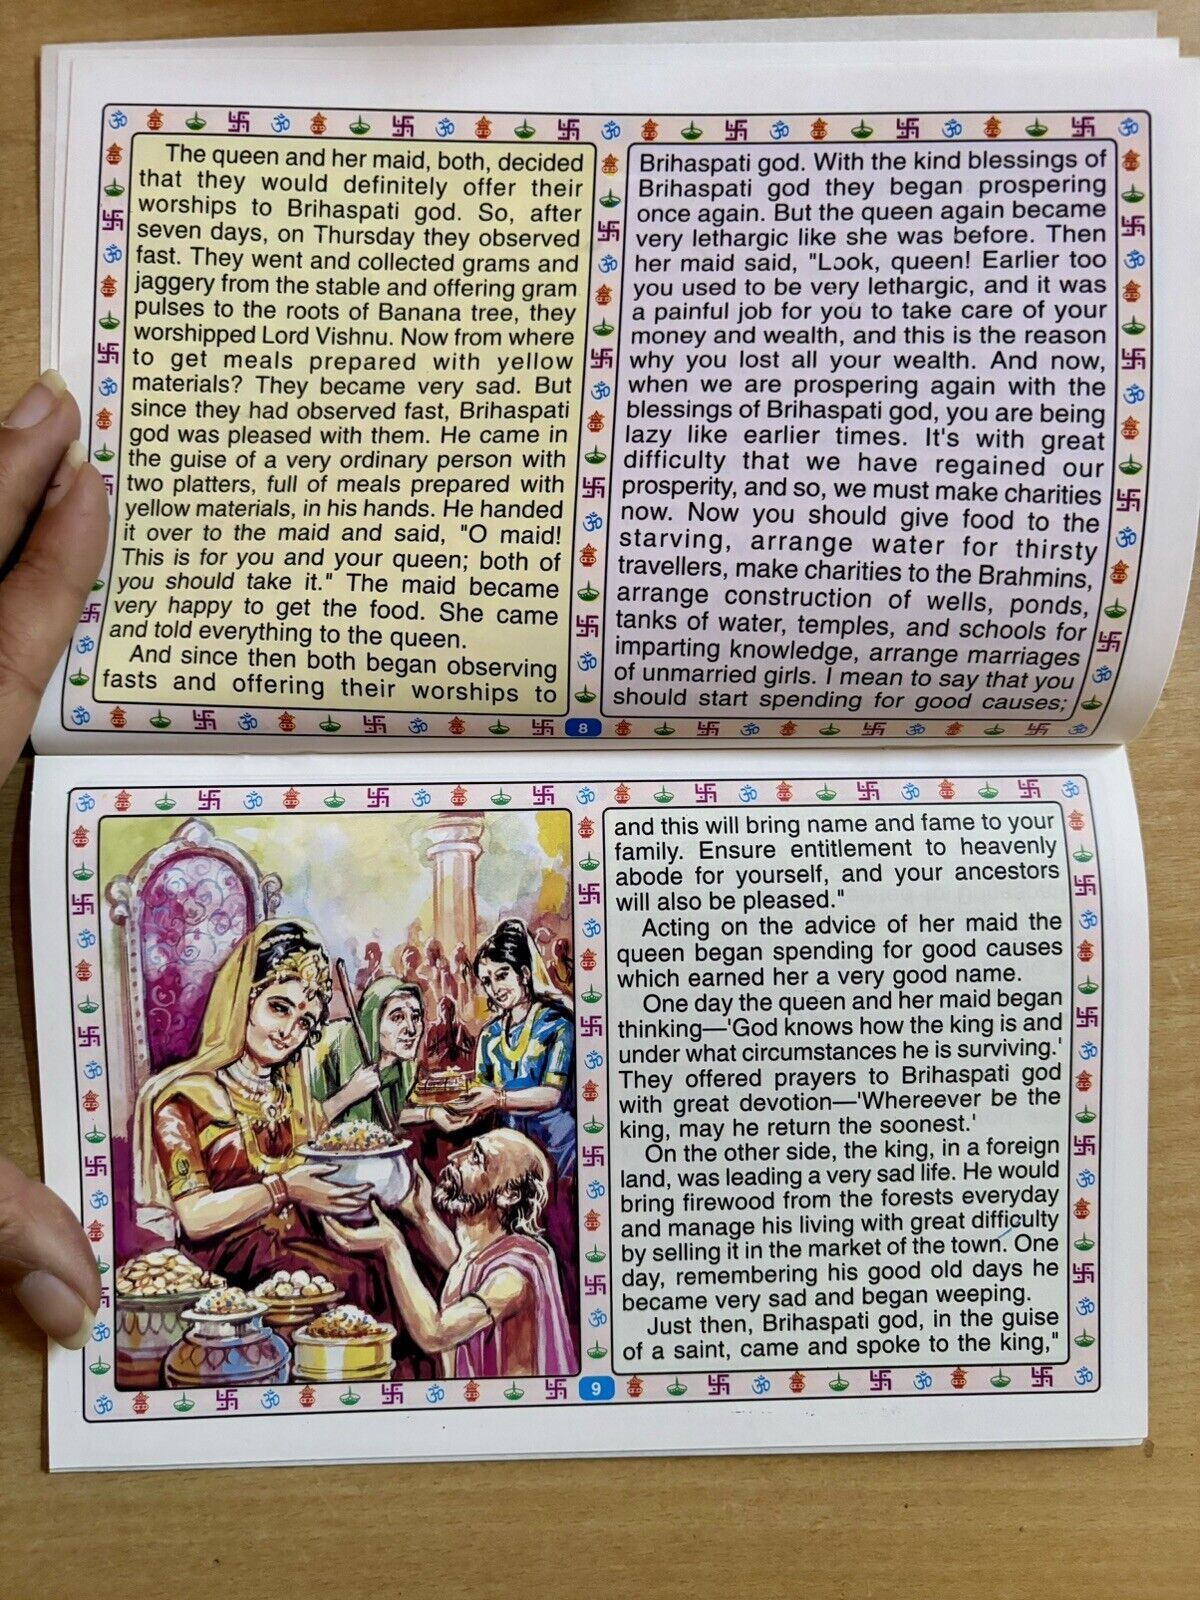 The queen and her maid, both, decided
that they would definitely offer their
worships to Brihaspati god. So, after
seven days, on Thursday they observed
fast. They went and collected grams and
jaggery from the stable and offering gram
pulses to the roots of Banana tree, they
worshipped Lord Vishnu. Now from where
to get meals prepared with yellow
materials? They became very sad. But
since they had observed fast, Brihaspati
god was pleased with them. He came in
the guise of a very ordinary person with
two platters, full of meals prepared with
yellow materials, in his hands. He handed
it over to the maid and said, "O maid!
This is for you and your queen; both of
you should take it." The maid became
very happy to get the food. She came
and told everything to the queen.
And since then both began observing
fasts and offering their worships to
Brihaspati god. With the kind blessings of
Brihaspati god they began prospering
once again. But the queen again became
very lethargic like she was before. Then
her maid said, "Look, queen! Earlier too
you used to be very lethargic, and it was
a painful job for you to take care of your
money and wealth, and this is the reason
why you lost all your wealth. And now,
when we are prospering again with the
blessings of Brihaspati god, you are being
lazy like earlier times. It's with great
difficulty that we have regained our
prosperity, and so, we must make charities
now. Now you should give food to the
starving, arrange water for thirsty
travellers, make charities to the Brahmins,
arrange construction of wells, ponds,
tanks of water, temples, and schools for
imparting knowledge, arrange marriages
of unmarried girls. I mean to say that you
should start spending for good causes;
8
and this will bring name and fame to your
family. Ensure entitlement to heavenly
abode for yourself, and your ancestors
will also be pleased."
Acting on the advice of her maid the
queen began spending for good causes
which earned her a very good name.
One day the queen and her maid began
thinking—'God knows how the king is and
under what circumstances he is surviving.'
They offered prayers to Brihaspati god
with great devotion—'Whereever be the
king, may he return the soonest.'
On the other side, the king, in a foreign
land, was leading a very sad life. He would
bring firewood from the forests everyday
and manage his living with great difficulty
by selling it in the market of the town. One
day, remembering his good old days he
became very sad and began weeping.
Just then, Brihaspati god, in the guise
of a saint, came and spoke to the king,"
9